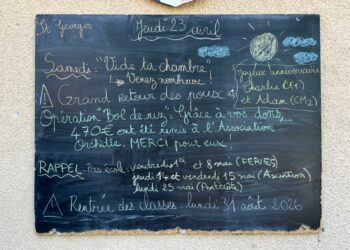 St Georges
Jeudi 23 avril
Samedi: "Vide ta chambre"
↳ Venez nombreux!
Joyeux anniversaire
Charlie (CE1)
et Adam (CM2)
⚠ Grand retour des poux
Opération "Bol de riz": Grâce à vos dons,
470€ ont été remis à l'Association
Orchidée. MERCI pour eux!
RAPPEL: Pas école: vendredis 1er et 8 mai (FERIES)
jeudi 14 et vendredi 15 mai (Ascention)
lundi 25 mai (Pentecôte)
⚠ Rentrée des classes: lundi 31 août 2026